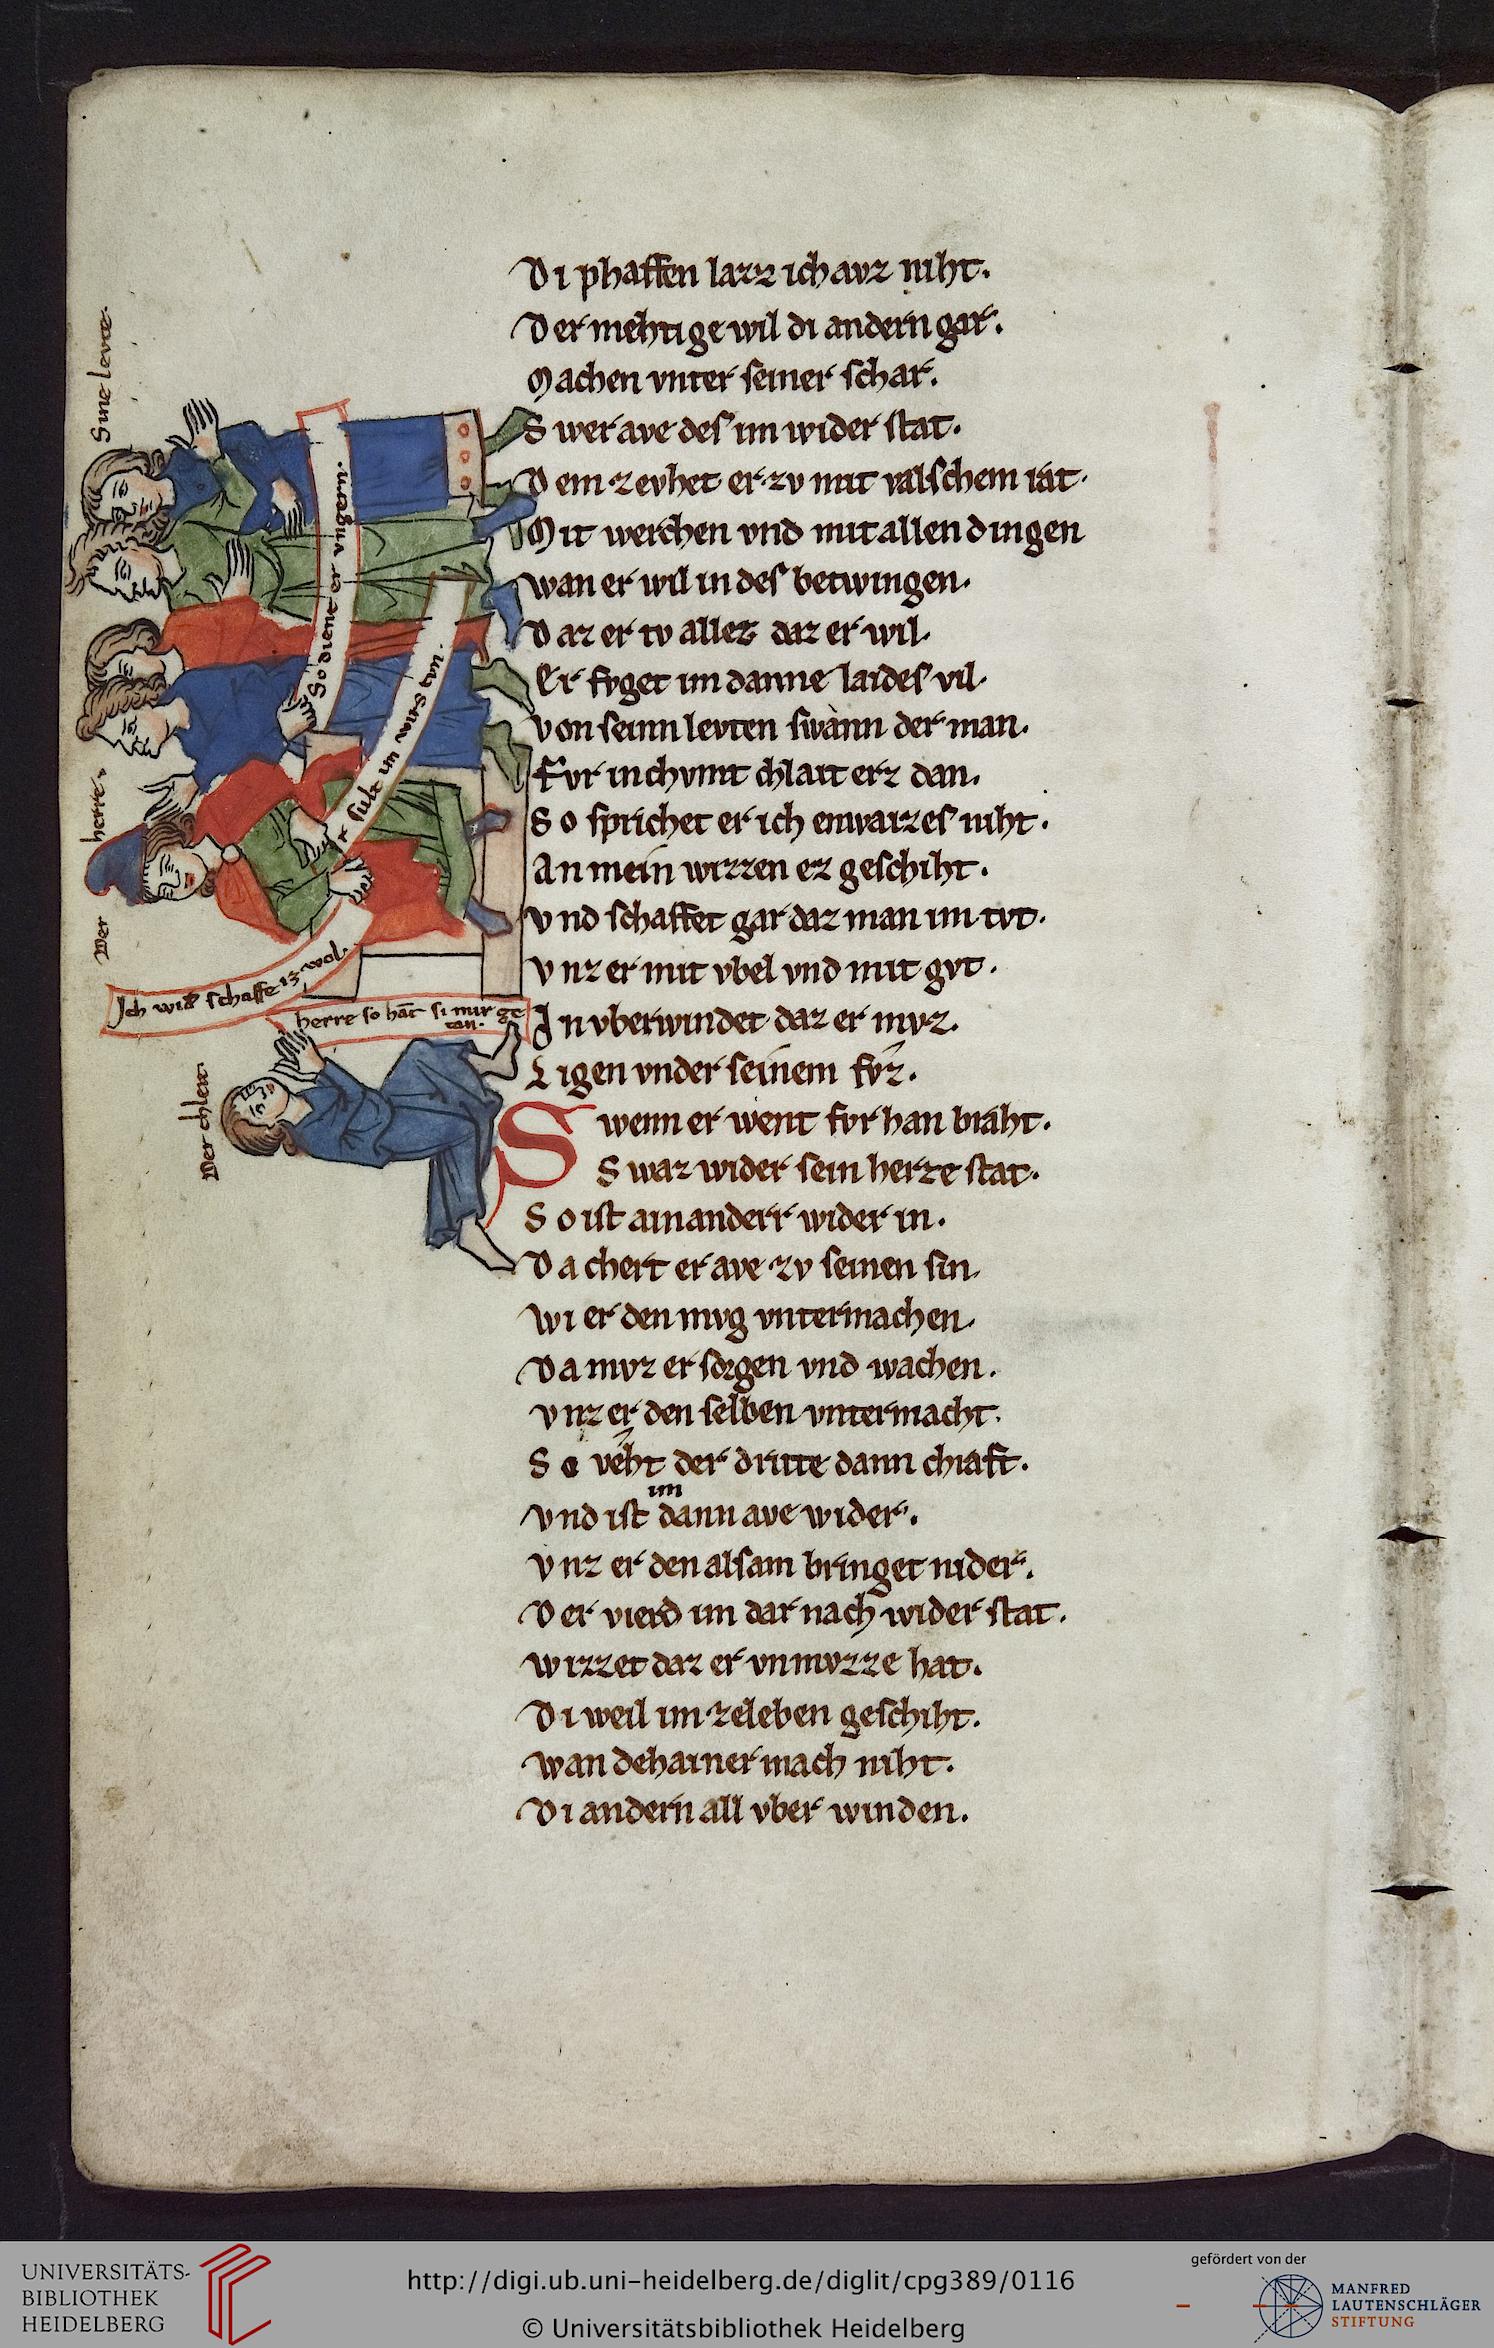 Di phaffen lazz ich avz niht.
Der mehtige wil di andern gar.
Machen vnter seiner schar.
Swer ave des im wider stat.
Dem zevhet er zv mit valschem rat.
Mit werchen vnd mit allen dingen
wan er wil in des betwingen.
Daz er tv allez daz er wil.
Er fvget im danne laides vil.
von seinn levten swann der man.
Fvr in chvmt chlait erz dan.
So sprichet er ich enwaizes niht.
An mein wizzen ez geschiht.
vnd schaffet gar daz man im tvt.
vnz er mit vbel vnd mit gvt.
In vberwindet daz er mvz.
Ligen vnder seinem fvz.
Swenn er went fvr han braht.
Swaz wider sein herze stat.
So ist ain anderr wider in.
Da chert er ave zv seinen sin.
wi er den mvg vntermachen.
Da mvz er sorgen vnd wachen.
vnz er den selben vntermacht.
So veht der dritte dann chraft.
im
vnd ist dann ave wider.
vnz er den alsam bringet nider.
Der vierd im dar nach wider stat.
wizzet daz er vnmvzze hat.
Di weil im ze leben geschiht.
wan dehainer mach niht.
Di andern all vber winden.
Sine levte.
So dient er vngern.
sult im wirs tvn.
Der herre.
Ich wil schaffe iz wol.
herre so hat si mir ge
tan.
Der chleit.
UNIVERSITÄTS-
BIBLIOTHEK
HEIDELBERG
http://digi.ub.uni-heidelberg.de/diglit/cpg389/0116
© Universitätsbibliothek Heidelberg
gefördert von der
MANFRED
LAUTENSCHLÄGER
STIFTUNG